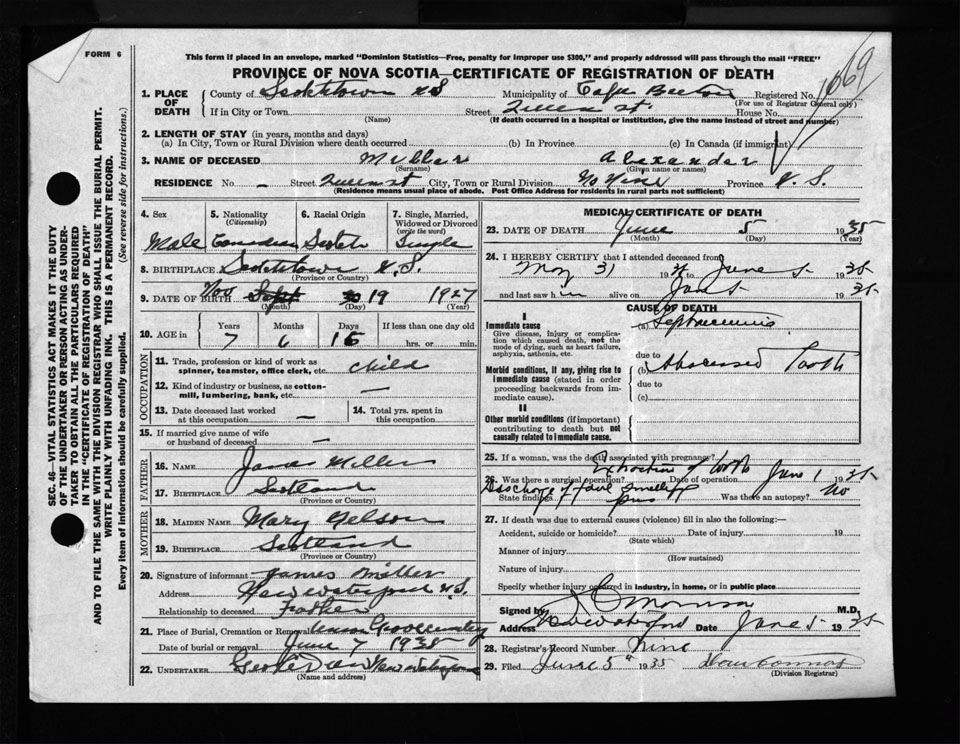 FORM 6
1669
This form if placed in an envelope, marked "Dominion Statistics—Free, penalty for improper use $300," and properly addressed will pass through the mail "FREE"
PROVINCE OF NOVA SCOTIA—CERTIFICATE OF REGISTRATION OF DEATH
SEC. 46—VITAL STATISTICS ACT MAKES IT THE DUTY
OF THE UNDERTAKER OR PERSON ACTING AS UNDER-
TAKER TO OBTAIN ALL THE PARTICULARS REQUIRED
IN THE "CERTIFICATE OF REGISTRATION OF DEATH"
AND TO FILE THE SAME WITH THE DIVISION REGISTRAR WHO SHALL ISSUE THE BURIAL PERMIT.
WRITE PLAINLY WITH UNFADING INK. THIS IS A PERMANENT RECORD.
Every item of information should be carefully supplied. (See reverse side for instructions.)
1. PLACE OF DEATH
County of Scotchtown N S Municipality of Cape Breton Registered No.
(For use of Registrar General only)
If in City or Town (Name) Street Queen st. House No.
(If death occurred in a hospital or institution, give the name instead of street and number)
2. LENGTH OF STAY (in years, months and days)
(a) In City, Town or Rural Division where death occurred (b) In Province (c) In Canada (if immigrant)
3. NAME OF DECEASED Miller Alexander
(Surname) (Given name or names)
RESIDENCE No. – Street Queen st City, Town or Rural Division Province N. S.
(Residence means usual place of abode. Post Office Address for residents in rural parts not sufficient)
4. Sex Male
5. Nationality (Citizenship) Canadian
6. Racial Origin Scotch
7. Single, Married, Widowed or Divorced (write the word) Single
8. BIRTHPLACE Scotchtown N.S.
(Province or Country)
9. DATE OF BIRTH Nov Sept 30 19 1927
(Month) (Day) (Year)
10. AGE in Years 7 Months 6 Days 16 If less than one day old hrs. or min.
OCCUPATION
11. Trade, profession or kind of work as spinner, teamster, office clerk, etc. child
12. Kind of industry or business, as cotton-mill, lumbering, bank, etc. —
13. Date deceased last worked at this occupation —
14. Total yrs. spent in this occupation
15. If married give name of wife or husband of deceased —
FATHER
16. NAME Miller
17. BIRTHPLACE Scotland
(Province or Country)
MOTHER
18. MAIDEN NAME Mary Gelson
19. BIRTHPLACE Scotland
(Province or Country)
20. Signature of informant James Miller
Address New Waterford N.S.
Relationship to deceased Father
21. Place of Burial, Cremation or Removal
Date of burial or removal June 7 1935
22. UNDERTAKER New Waterford
(Name and address)
MEDICAL CERTIFICATE OF DEATH
23. DATE OF DEATH June 5 1935
(Month) (Day) (Year)
24. I HEREBY CERTIFY that I attended deceased from
May 31 1935 to June 5 1935
and last saw him alive on June 5 1935
CAUSE OF DEATH
I
Immediate cause
Give disease, injury or complication which caused death, not the mode of dying, such as heart failure, asphyxia, asthenia, etc.
(a)
due to
Morbid conditions, if any, giving rise to immediate cause (stated in order proceeding backwards from immediate cause).
(b) Abscessed Tooth
due to
(c)
II
Other morbid conditions (if important) contributing to death but not causally related to immediate cause.
25. If a woman, was the death associated with pregnancy?
Extraction of tooth
26. Was there a surgical operation? Date of operation June 1 1935
Discharge of foul smelling pus
State findings Was there an autopsy? No
27. If death was due to external causes (violence) fill in also the following:—
Accident, suicide or homicide? Date of injury 19
(State which)
Manner of injury
(How sustained)
Nature of injury
Specify whether injury occurred in industry, in home, or in public place
Signed by M.D.
Address New Waterford Date June 5 1935
28. Registrar's Record Number Nine
29. Filed June 5th 1935
(Division Registrar)